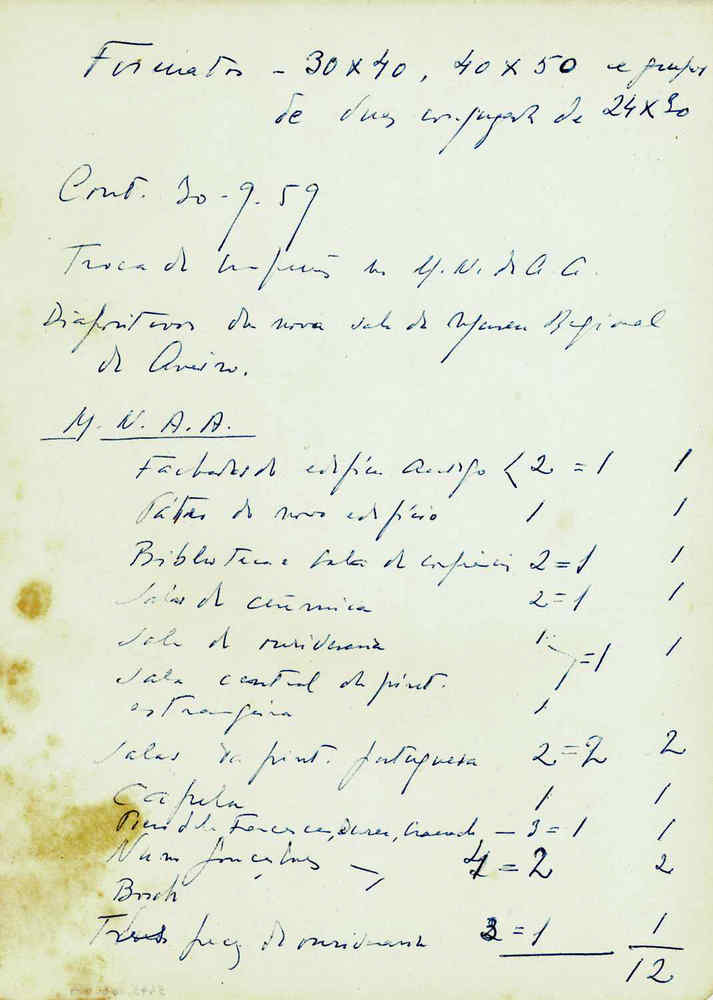 Formatos - 30 x 40, 40 x 50 e grupos
de duas conjugadas de 24 x 30
Cont. 30-9-59
Troca de impressões no M. N. de A. A.
Diapositivos da nova sala do Museu Regional
de Aveiro.
M. N. A. A.
Fachadas do edifício antigo < 2 = 1 1
Pátio do novo edifício 1 1
Biblioteca e sala de conferências 2 = 1 1
Salas de cerâmica 2 = 1 1
Sala de ourivesaria 1 = 1 1
Sala central de pint.
estrangeira 1
Salas da pint. portuguesa 2 = 2 2
Capela 1 1
Piero della Francesca, Durer, Cranach - 3 = 1 1
Nuno Gonçalves 4 = 2 2
Bosch
Três peças de ourivesaria 3 = 1 1
12